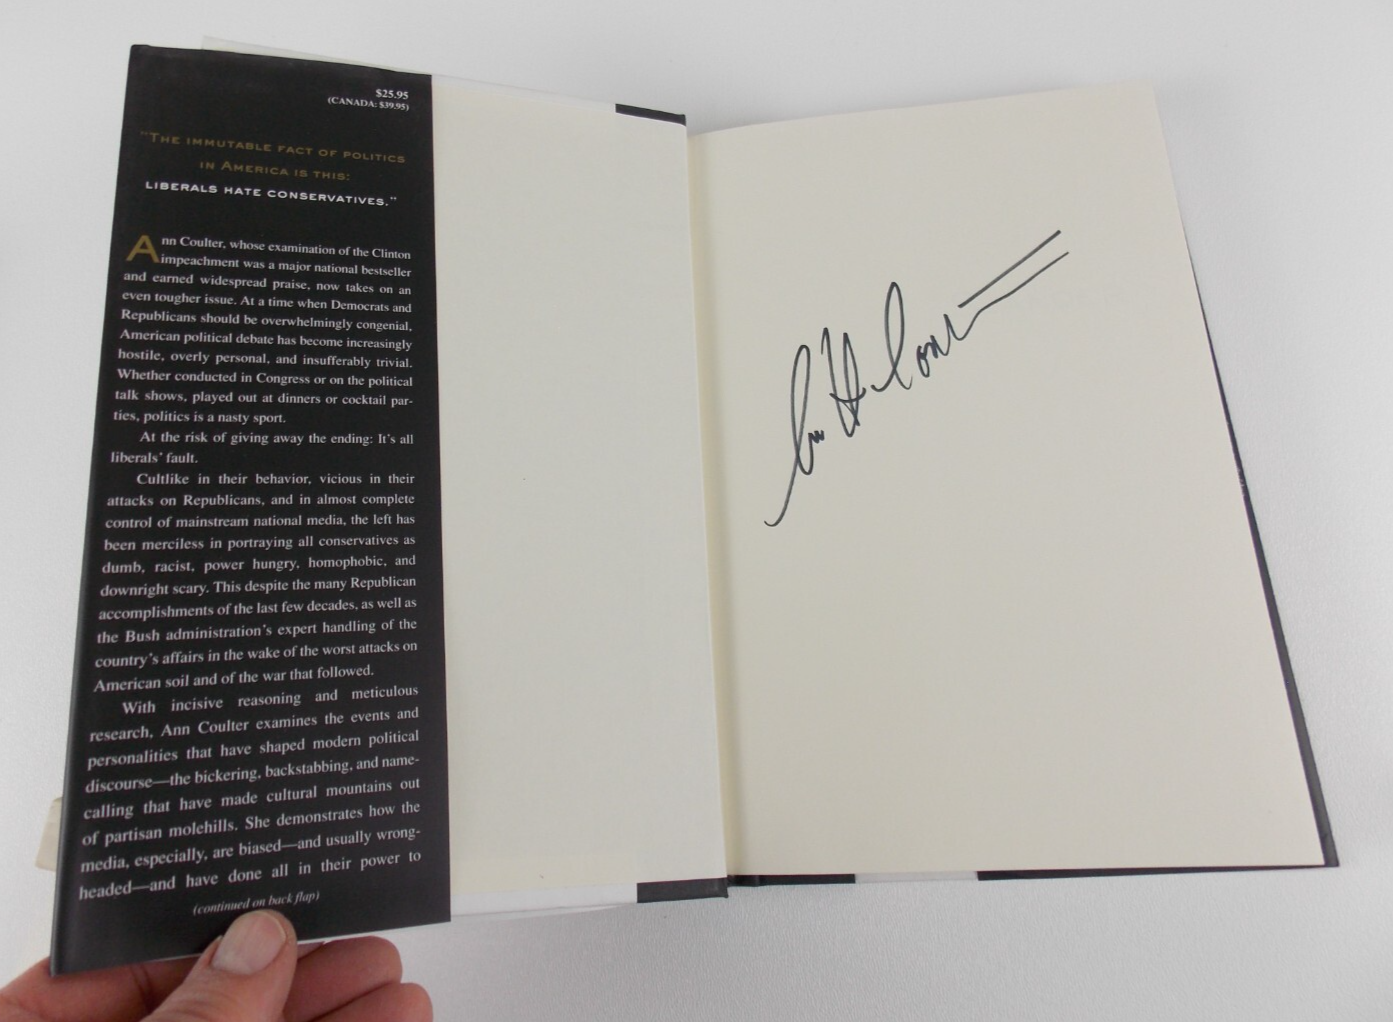 $25.95
(CANADA: $39.95)
"THE IMMUTABLE FACT OF POLITICS
IN AMERICA IS THIS:
LIBERALS HATE CONSERVATIVES."
Ann Coulter, whose examination of the Clinton
impeachment was a major national bestseller
and earned widespread praise, now takes on an
even tougher issue. At a time when Democrats and
Republicans should be overwhelmingly congenial,
American political debate has become increasingly
hostile, overly personal, and insufferably trivial.
Whether conducted in Congress or on the political
talk shows, played out at dinners or cocktail par-
ties, politics is a nasty sport.
At the risk of giving away the ending: It's all
liberals' fault.
Cultlike in their behavior, vicious in their
attacks on Republicans, and in almost complete
control of mainstream national media, the left has
been merciless in portraying all conservatives as
dumb, racist, power hungry, homophobic, and
downright scary. This despite the many Republican
accomplishments of the last few decades, as well as
the Bush administration's expert handling of the
country's affairs in the wake of the worst attacks on
American soil and of the war that followed.
With incisive reasoning and meticulous
research, Ann Coulter examines the events and
personalities that have shaped modern political
discourse—the bickering, backstabbing, and name-
calling that have made cultural mountains out
of partisan molehills. She demonstrates how the
media, especially, are biased—and usually wrong-
headed—and have done all in their power to
(continued on back flap)